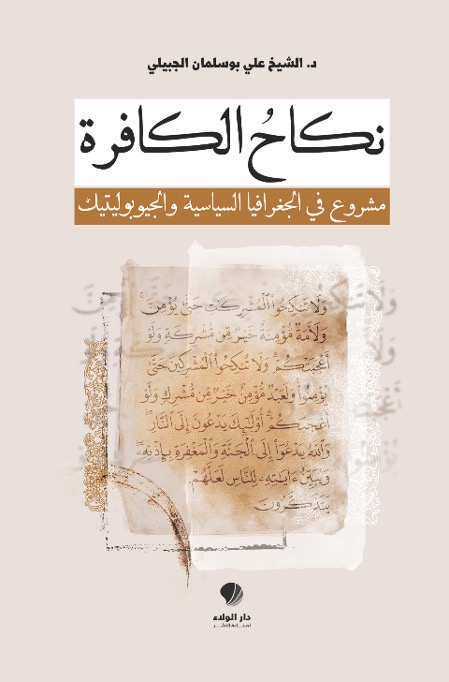 د. الشيخ علي بوسلمان الجبيلي
نكاحُ الكافرة
مشروع في الجغرافيا السياسية والجيوبوليتيك
وَلَا تَنكِحُوا۟ ٱلْمُشْرِكَٰتِ حَتَّىٰ يُؤْمِنَّ
وَلَأَمَةٌ مُّؤْمِنَةٌ خَيْرٌ مِّن مُّشْرِكَةٍ وَلَوْ
أَعْجَبَتْكُمْ وَلَا تُنكِحُوا۟ ٱلْمُشْرِكِينَ حَتَّىٰ
يُؤْمِنُوا۟ وَلَعَبْدٌ مُّؤْمِنٌ خَيْرٌ مِّن مُّشْرِكٍ وَلَوْ
أَعْجَبَكُمْ أُو۟لَٰٓئِكَ يَدْعُونَ إِلَى ٱلنَّارِ
وَٱللَّهُ يَدْعُوٓا۟ إِلَى ٱلْجَنَّةِ وَٱلْمَغْفِرَةِ بِإِذْنِهِۦ
وَيُبَيِّنُ ءَايَٰتِهِۦ لِلنَّاسِ لَعَلَّهُمْ
يَتَذَكَّرُونَ
دار الولاء